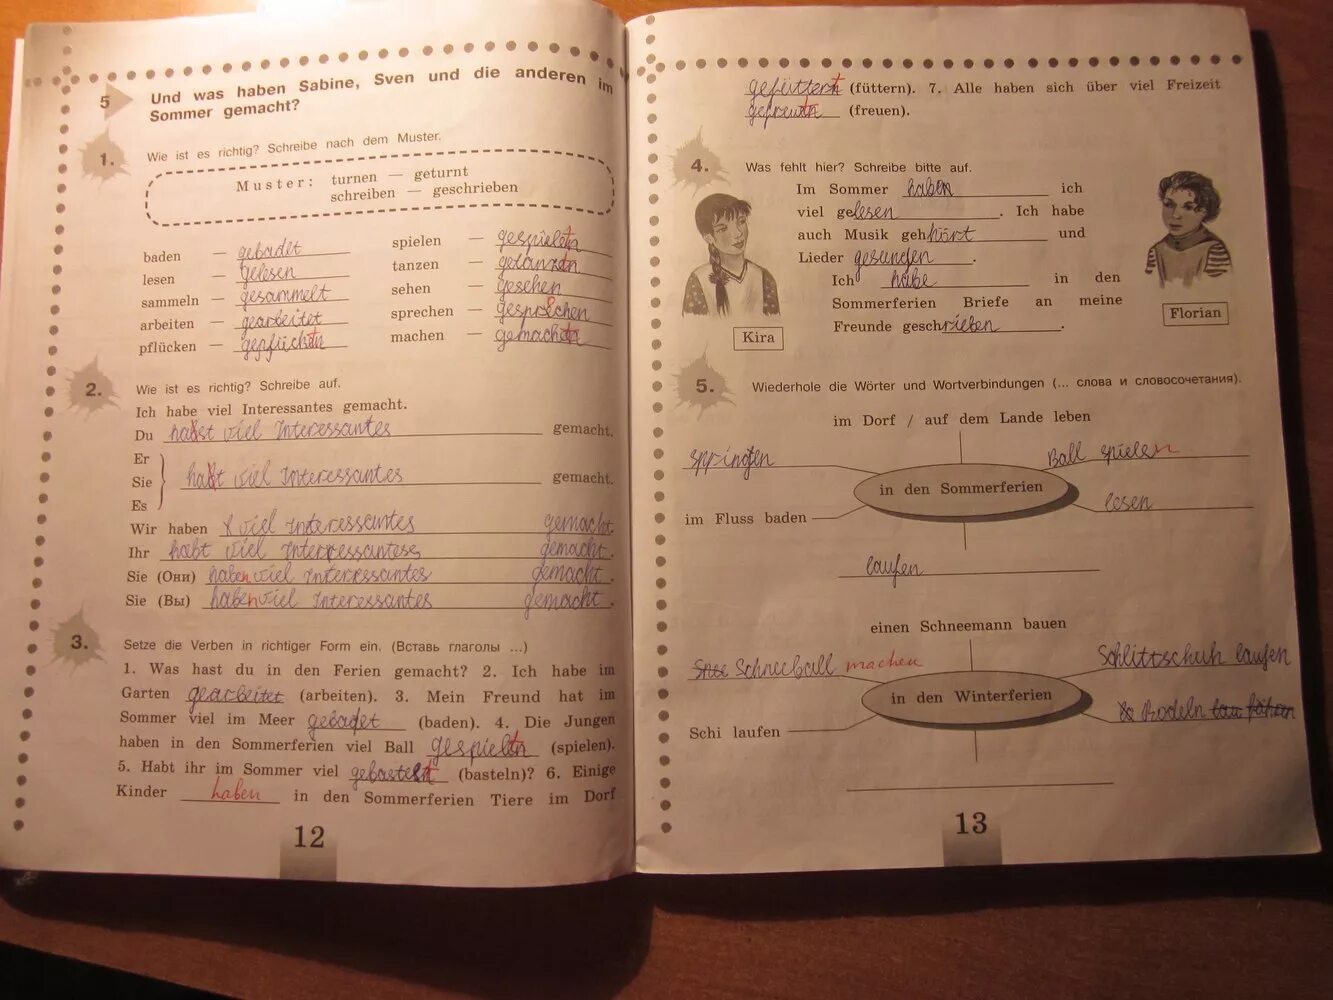 5 Und was haben Sabine, Sven und die anderen im
Sommer gemacht?
1. Wie ist es richtig? Schreibe nach dem Muster.
Muster: turnen — geturnt
schreiben — geschrieben
baden — gebadet
lesen — gelesen
sammeln — gesammelt
arbeiten — gearbeitet
pflücken —
spielen — gespielt
tanzen — getanzt
sehen — gesehen
sprechen — gesprochen
machen — gemacht
2. Wie ist es richtig? Schreibe auf.
Ich habe viel Interessantes gemacht.
Du hast viel Interessantes gemacht.
Er
Sie hat viel Interessantes gemacht.
Es
Wir haben viel Interessantes gemacht.
Ihr habt viel Interessantes gemacht.
Sie (Они) haben viel Interessantes gemacht.
Sie (Вы) haben viel Interessantes gemacht.
3. Setze die Verben in richtiger Form ein. (Вставь глаголы ...)
1. Was hast du in den Ferien gemacht? 2. Ich habe im
Garten gearbeitet (arbeiten). 3. Mein Freund hat im
Sommer viel im Meer gebadet (baden). 4. Die Jungen
haben in den Sommerferien viel Ball gespielt (spielen).
5. Habt ihr im Sommer viel gebastelt (basteln)? 6. Einige
Kinder haben in den Sommerferien Tiere im Dorf
12
gefüttert (füttern). 7. Alle haben sich über viel Freizeit
gefreut (freuen).
4. Was fehlt hier? Schreibe bitte auf.
Im Sommer haben ich
viel gelesen. Ich habe
auch Musik gehört und
Lieder gesungen.
Ich habe in den
Sommerferien Briefe an meine
Freunde geschrieben.
Kira
Florian
5. Wiederhole die Wörter und Wortverbindungen (... слова и словосочетания).
im Dorf / auf dem Lande leben
springen
Ball spielen
in den Sommerferien
im Fluss baden
lesen
laufen
einen Schneemann bauen
Schneeball machen
Schlittschuh laufen
in den Winterferien
Rodeln
Schi laufen
13